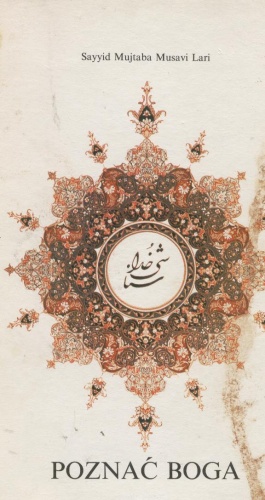 Sayyid Mujtaba Musavi Lari
خداشناسی
POZNAĆ BOGA